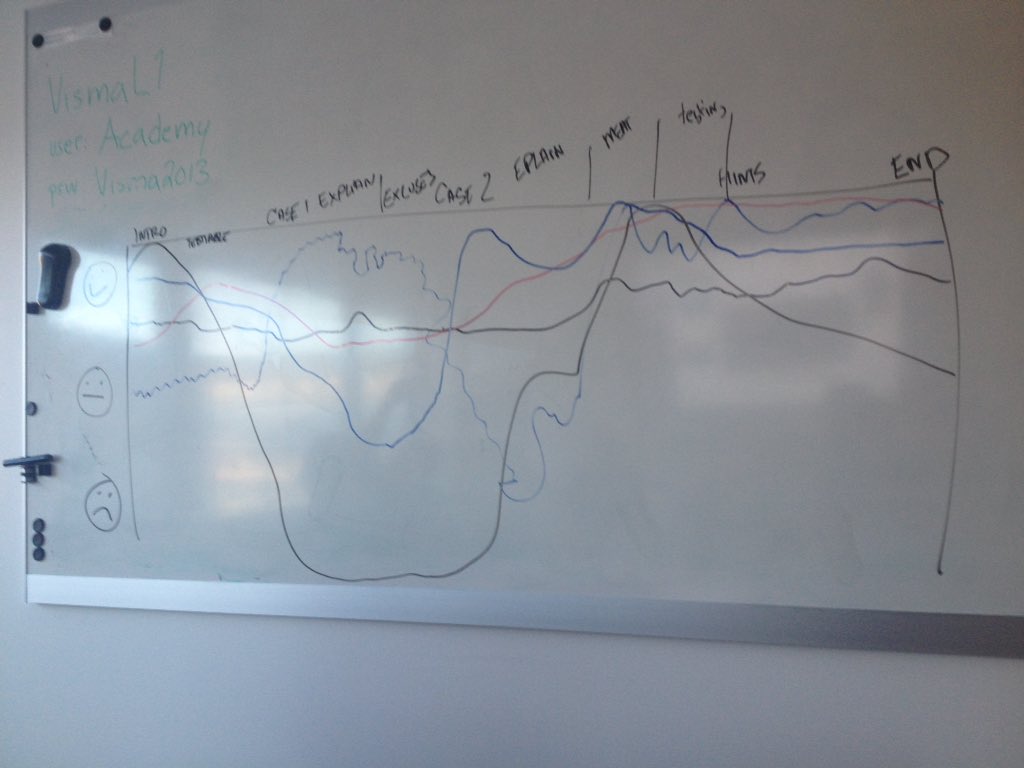 VismaL1
user: Academy
psw: Visma2013
INTRO
CASE 1 EXPLAIN
EXCUSES
CASE 2
EPLAIN
MEAT
testing
HINTS
END